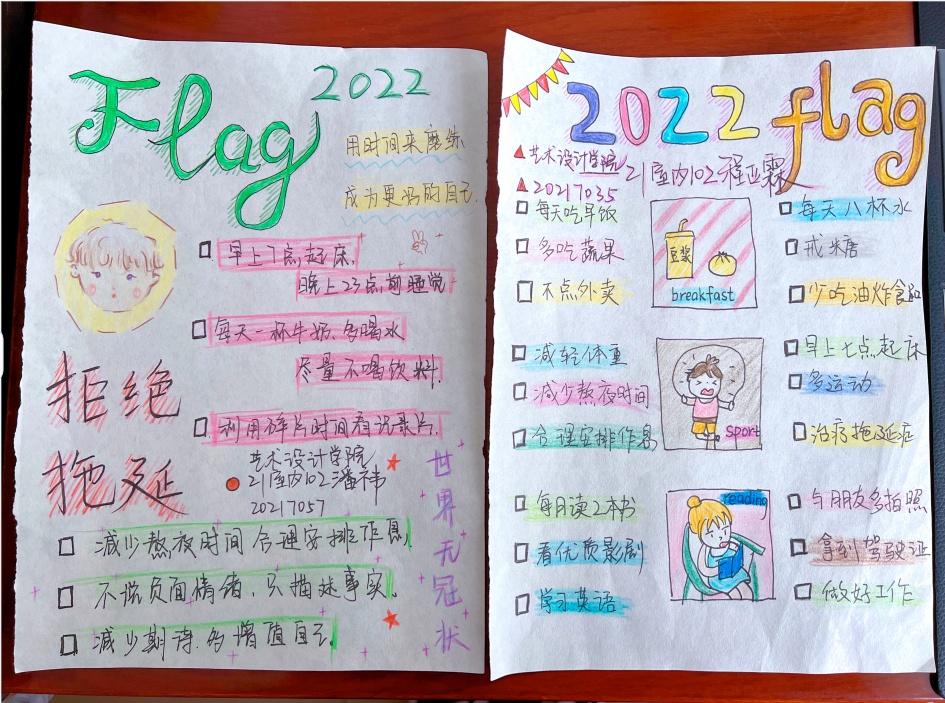 Flag
2022
用时间来磨练
成为更好的自己
早上7点起床,
晚上23点前睡觉
每天一杯牛奶、多喝水
尽量不喝饮料.
利用碎片时间看记录片.
拒绝
拖延
艺术设计学院
21室内102潘祎
20217057
世界无冠状
减少熬夜时间 合理安排作息,
不说负面情绪,只描述事实.
减少期待.多增值自己.
2022 flag
艺术设计学院
21室内102程亚霖
20217035
每天吃早饭
多吃蔬果
不点外卖
豆浆
breakfast
每天八杯水
戒糖
少吃油炸食品
减轻体重
减少熬夜时间
合理安排作息
sport
早上七点起床
多运动
治疗拖延症
每月读2本书
看优质影剧
学习英语
reading
与朋友多拍照
拿到驾驶证
做好工作